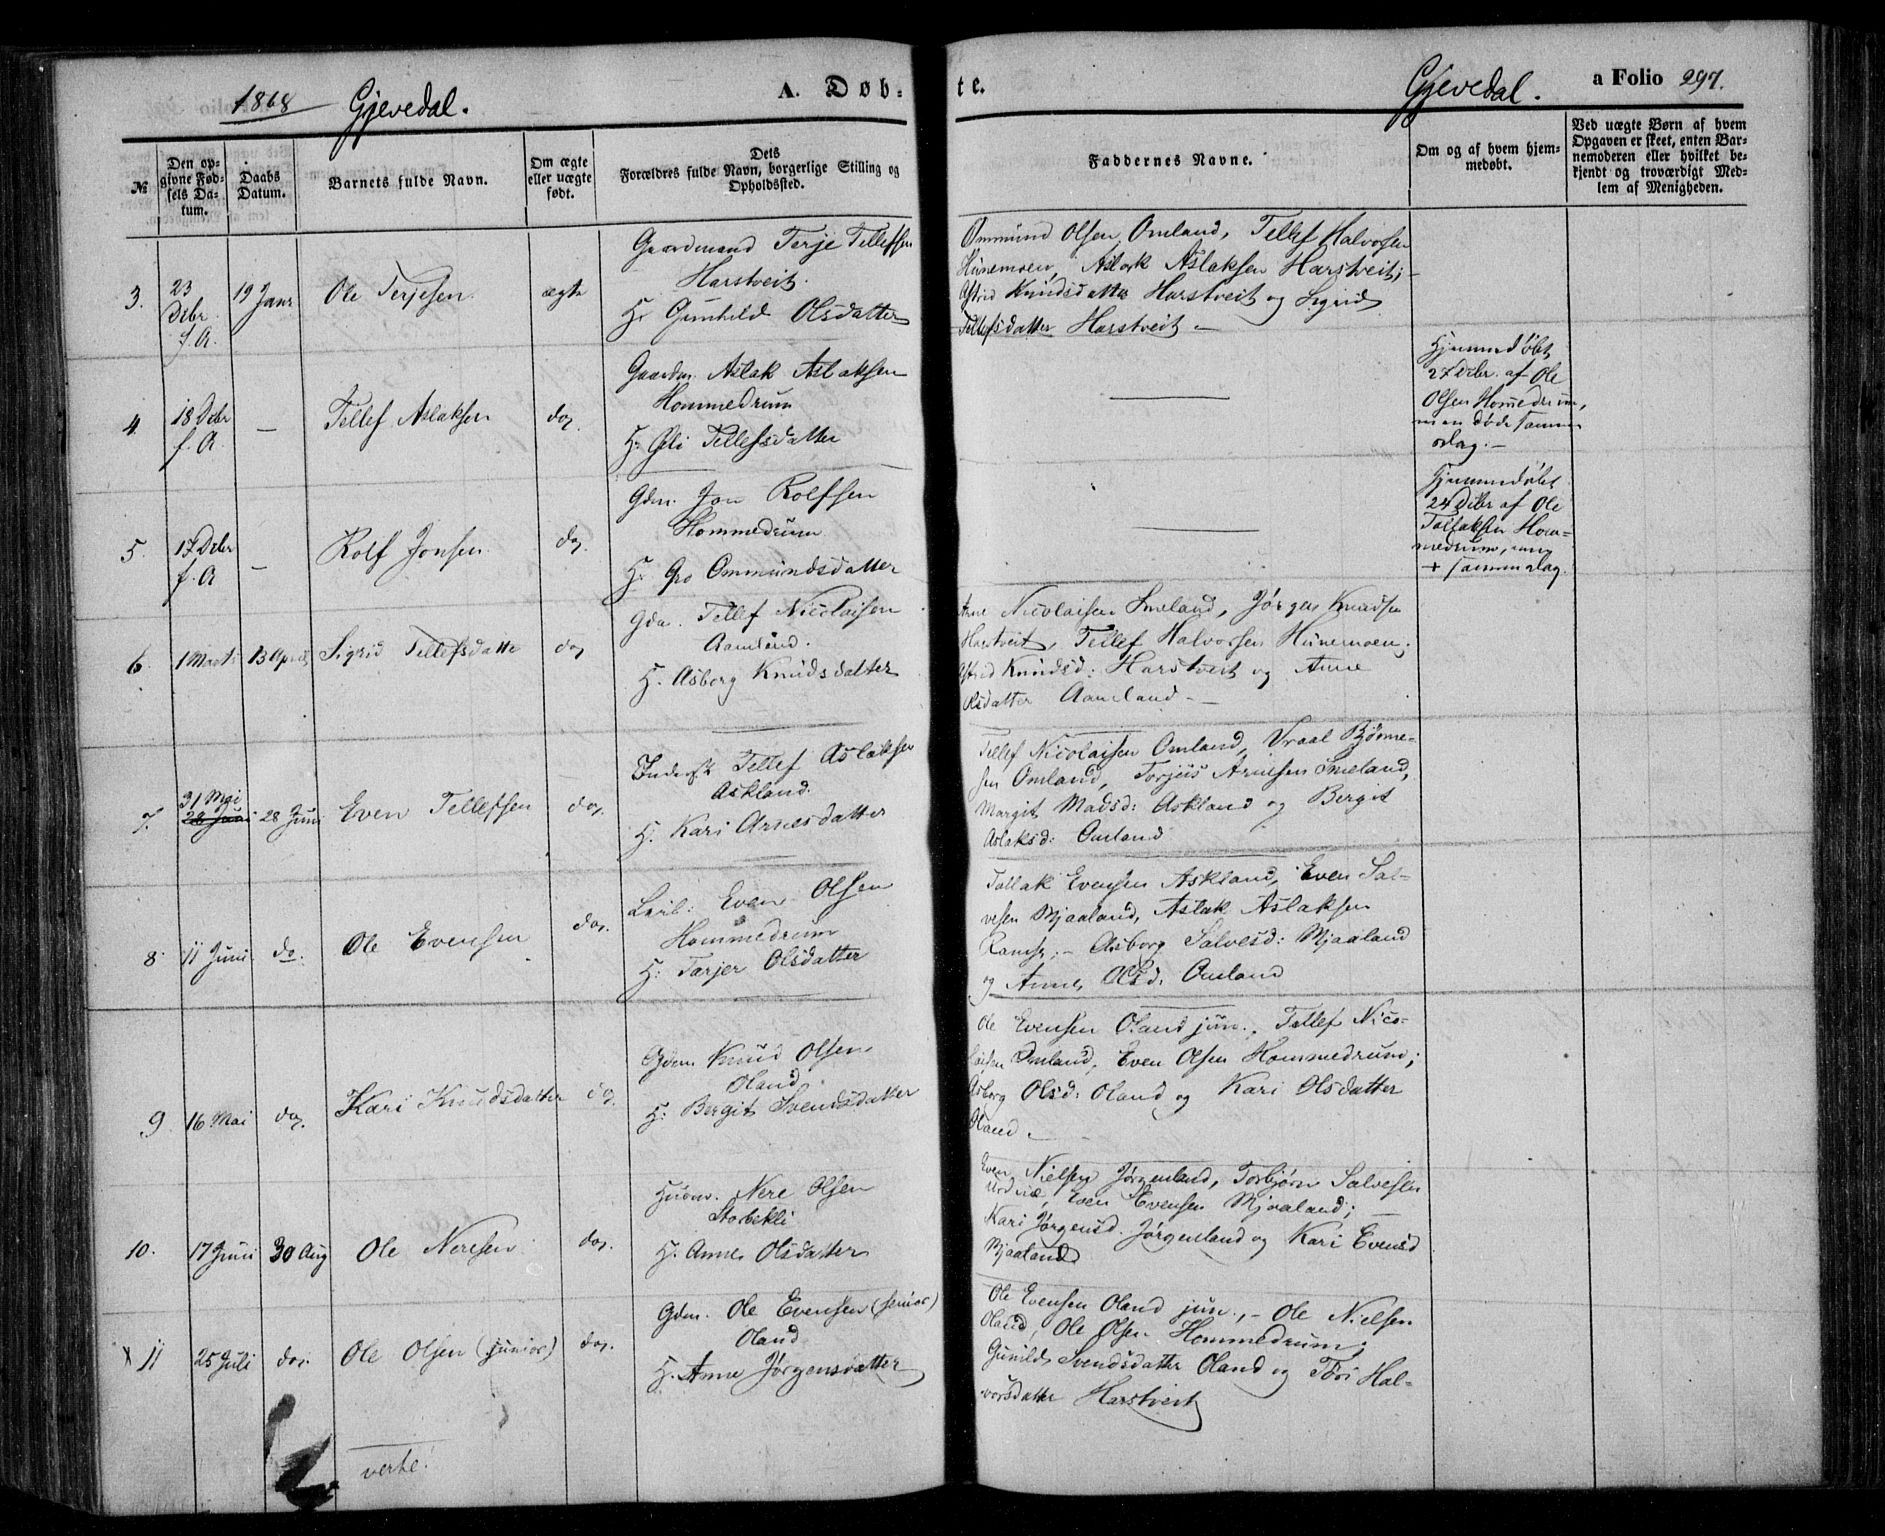 1868 Gjevedal.
A. Døb-
te.
Gjevedal.
a Folio 297.
№
Den op-
givne Fød-
sels Da-
tum.
Daabs
Datum.
Barnets fulde Navn.
Om ægte
eller uægte
født.
Dets
Forældres fulde Navn, borgerlige Stilling og
Opholdssted.
Faddernes Navne.
Om og af hvem hjem-
medøbt.
Ved uægte Børn af hvem
Opgaven er skeet, enten Bar-
nemoderen eller hvilket be-
kjendt og troværdigt Med-
lem af Menigheden.
3.
23
Debr.
f. A.
19 Janr
Ole Terjesen.
ægte
Gaardmand Terje Tellefsen
Harstveit.
H: Gunhild Olsdatter
Ommund Olsen Omland, Tellef Halvorsen
Hunemoen, Aslak Aslaksen Harstveit; -
Astrid Knudsdatter Harstveit og Sigrid
Tellefsdatter Harstveit -
4.
18 Debr
f. A
-
Tellef Aslaksen
do.
Gaardm. Aslak Aslaksen
Hommedrum
H: Tellefsdatter
Hjemmedøbt
27 Debr. af Ole
Olsen Homedrum,
men døde samme
dag. -
5.
17 Debr
f. A
-
Rolf Jonsen
do.
Gdm. Jon Rolfsen
Hommedrum
H: Gro Ommundsdatter
Hjemmedøbt
24 Debr af Ole
Tallaksen Hom-
medrum, men
+ samme dag.
6.
1 Marts
13 April
Sigrid Tellefsdatter
do
Gdm. Tellef Nicolaisen
Aamland.
H. Asborg Knudsdatter
Arne Nicolaisen Smeland, Jørgen Knudsen
Harstveit, Tellef Halvorsen Hunemoen;
Astrid Knudsd: Harstveit og Anne
Olsdatter Aamland -
7.
31 Mai
28 Juni
28 Juni
Even Tellefsen
do.
Inderst Tellef Aslaksen
Askland.
H: Kari Arnesdatter
Tellef Nicolaisen Omland, Vraal Bjørne-
sen Omland, Torjus Arnesen Smeland,
Margit Madsd: Askland og Bergit
Aslaksd: Omland
8
11 Juni
do.
Ole Evensen
do.
Leil: Even Olsen
Hommedrum
H: Tarjer Olsdatter
Tallak Evensen Askland, Even Sal-
vesen Mjaaland, Aslak Aslaksen
Ramse; - Asborg Salvesd: Mjaaland
og Anne Olsd: Omland
9
16 Mai
do.
Kari Knudsdatter
do.
Gdm. Knud Olsen
Oland
H: Bergit Svendsdatter
Ole Evensen Oland jun., Tellef Nico-
laisen Omland, Even Olsen Hommedrum;
Asborg Olsd: Oland og Kari Olsdatter
Oland -
10.
17 Juni
30 Aug
Ole Neresen
do.
Huusm. Nere Olsen
Storbekli
H. Anne Olsdatter
Even Nielsen Jørgenland, Torbjørn Salvesen
Even Evensen Mjaaland; -
Kari Jørgensd. Jørgenland og Kari Evensd
Mjaaland
x 11
25 Juli
do.
Ole Olsen (junior)
do.
Gdm. Ole Evensen (senior)
Oland
H. Anne Jørgensdatter
Ole Evensen Oland jun., - Ole Nielsen
Oland, Ole Olsen Hommedrum;
Gunild Svendsdatter Oland og Tori Hal-
vorsdatter Harstveit
verte!